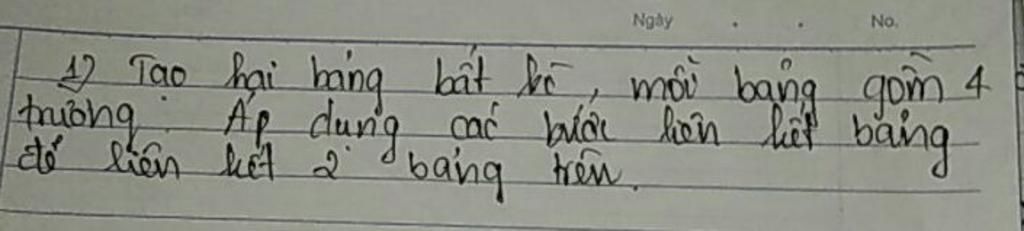 Ngày . . No.
1) Tạo hai bảng bất kì, mỗi bảng gồm 4
trường. Áp dụng các bước liên kết bảng
để liên kết 2 bảng trên.